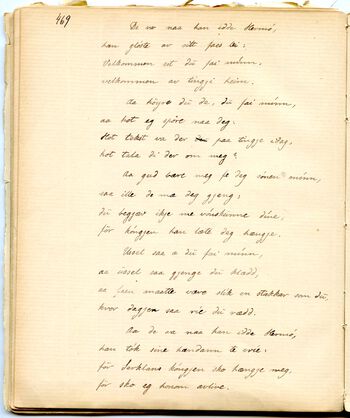 469
De va naa han idde Hermó,
han gløtte av sitt faes lei:
Velkommen est dú fai mínn,
velkommen av tingji heim.
Aa høyre dú de, dú fai mínn,
aa hot eg spöre naa deg:
Hot tekst va der paa tingje idag,
hot tala di der om meg?
Aa gud bære meg fe deg sonen mínn,
saa ille de mæ deg gjeng;
dú begjær ikje me vónskunne díne,
för kóngjen han læte deg hængje.
Ussel saa a dú fai mínn,
aa ússel saa gjenge dú klædd,
aa faen maatte være slik en stakkar som dú,
kvor dagjen saa vie dú rædd.
Aa de va naa han idde Hermó,
han tók sine hændann te vrie:
för Serklans kóngjen sko hængje meg,
för sko eg honom avlive.